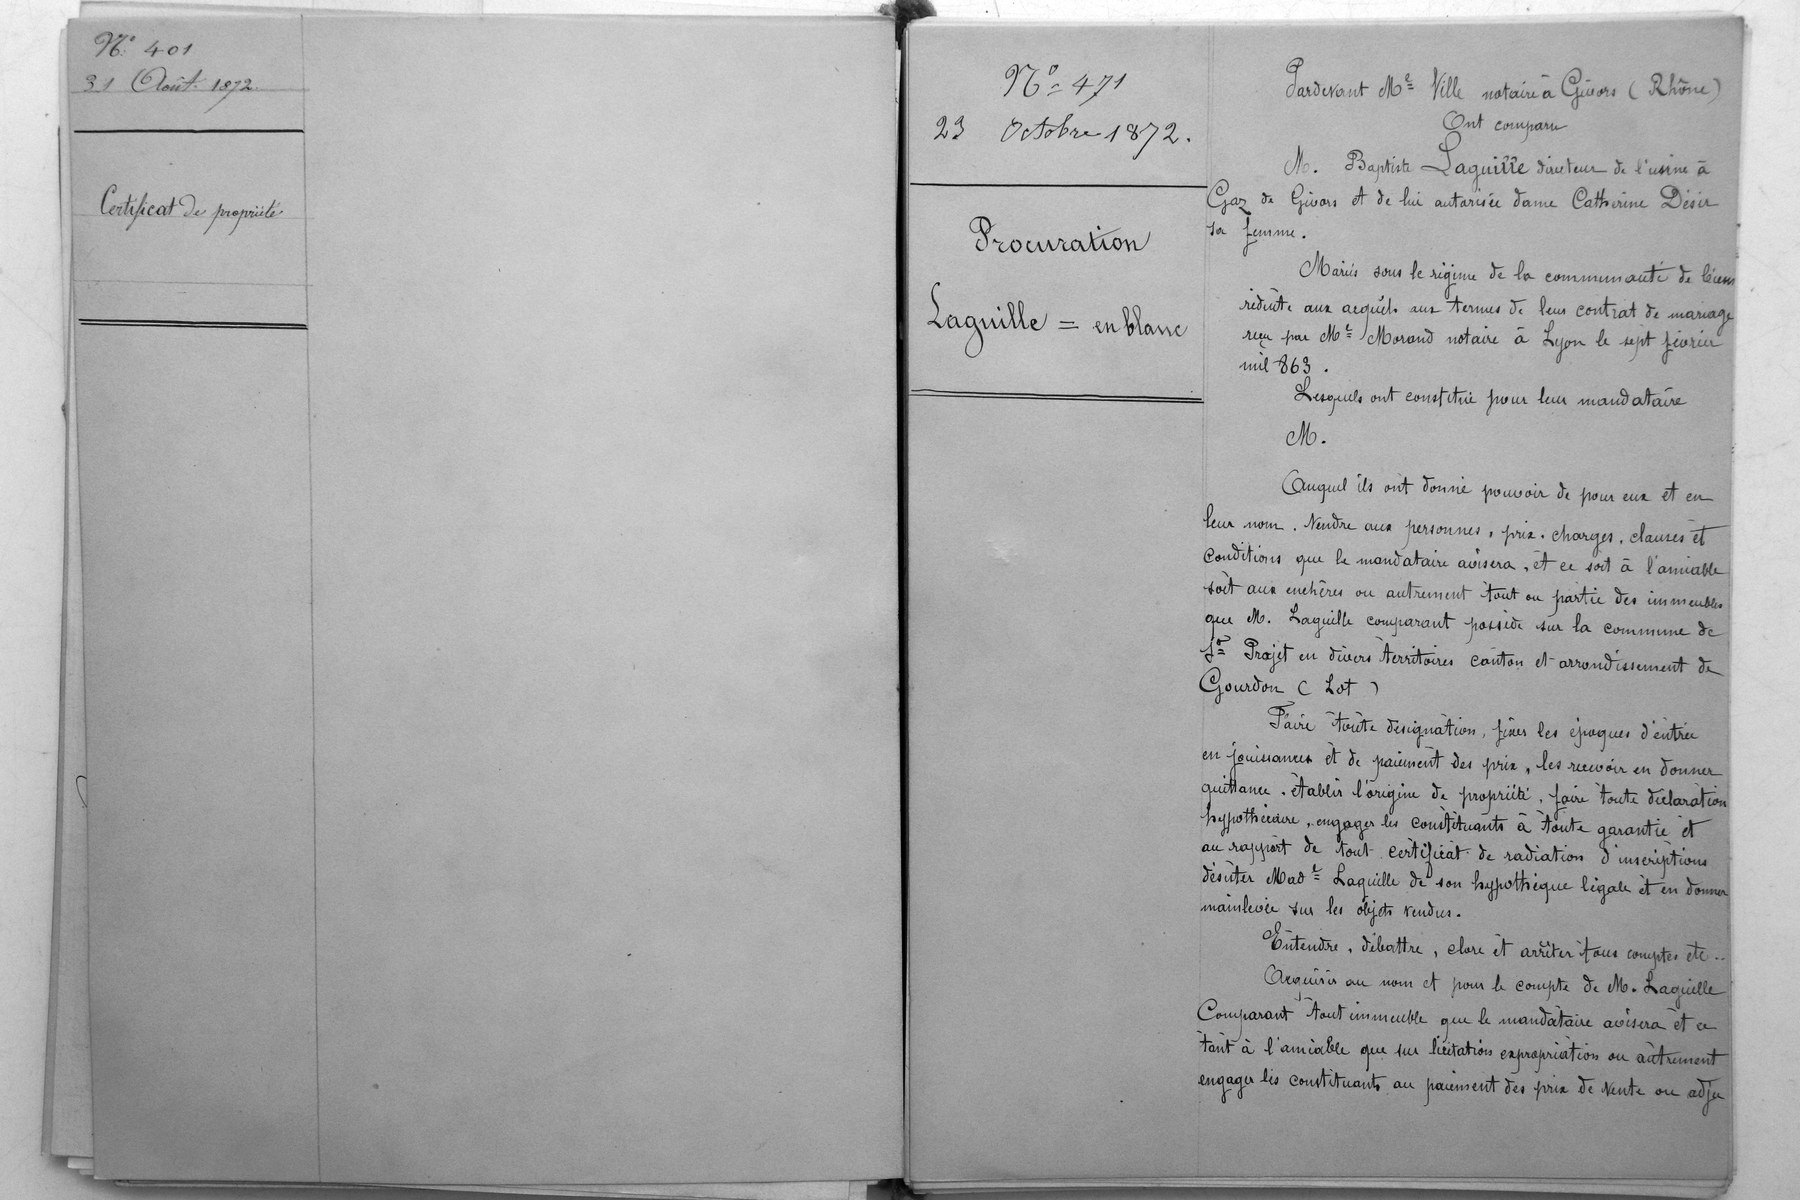 N° 401
31 Août 1872.
Certificat de propriété
N° 471
23 Octobre 1872.
Procuration
Laguille = en blanc
Pardevant Me Ville notaire à Givors (Rhône)
Ont comparu
M. Baptiste Laguille directeur de l'usine à
Gaz de Givors et de lui autorisée dame Catherine Désir
sa femme.
Mariés sous le régime de la communauté de biens
réduite aux acquêts aux termes de leur contrat de mariage
reçu par Me Morand notaire à Lyon le sept février
mil 863.
Lesquels ont constitué pour leur mandataire
M.
Auquel ils ont donné pouvoir de pour eux et en
leur nom. Vendre aux personnes, prix. charges, clauses et
conditions que le mandataire avisera, et ce soit à l'amiable
soit aux enchères ou autrement tout ou partie des immeubles
que M. Laguille comparant possède sur la commune de
St Projet en divers territoires canton et arrondissement de
Gourdon (Lot)
Faire toute désignation, fixer les époques d'entrée
en jouissances et de paiement des prix, les recevoir en donner
quittance. établir l'origine de propriété, faire toute déclaration
hypothécaire, engager les constituants à toute garantie et
au rapport de tout certificat de radiation d'inscriptions
désister Made Laguille de son hypothèque légale et en donner
mainlevée sur les objets vendus.
Entendre, débattre, clore et arrêter tous comptes etc..
Acquérir au nom et pour le compte de M. Laguille
Comparant tout immeuble que le mandataire avisera et ce
tant à l'amiable que sur licitation expropriation ou autrement
engager les constituants au paiement des prix de vente ou adju